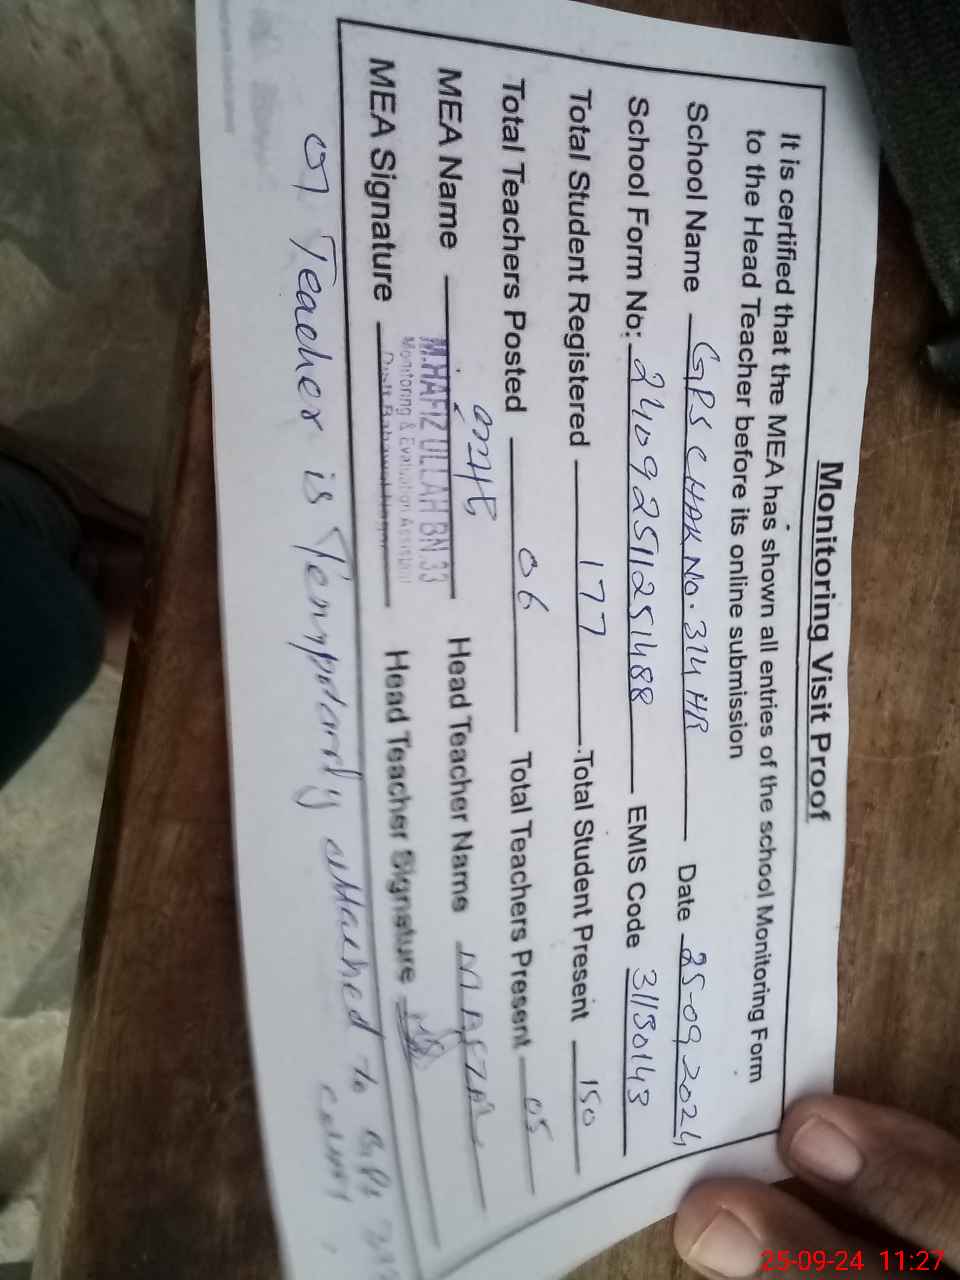 Monitoring Visit Proof
It is certified that the MEA has shown all entries of the school Monitoring Form
to the Head Teacher before its online submission
School Name GPS CHAK No. 314 HR Date 25-09-2024
School Form No: 24092511251488 EMIS Code 31130143
Total Student Registered 177 Total Student Present 150
Total Teachers Posted 06 Total Teachers Present 05
MEA Name M.HAFIZ ULLAH BN.33 Head Teacher Name
Monitoring & Evaluation Assistant
Distt Bahawalnagar
MEA Signature Head Teacher Signature
01 Teacher is Temporarly attached to GPS
25-09-24 11:27